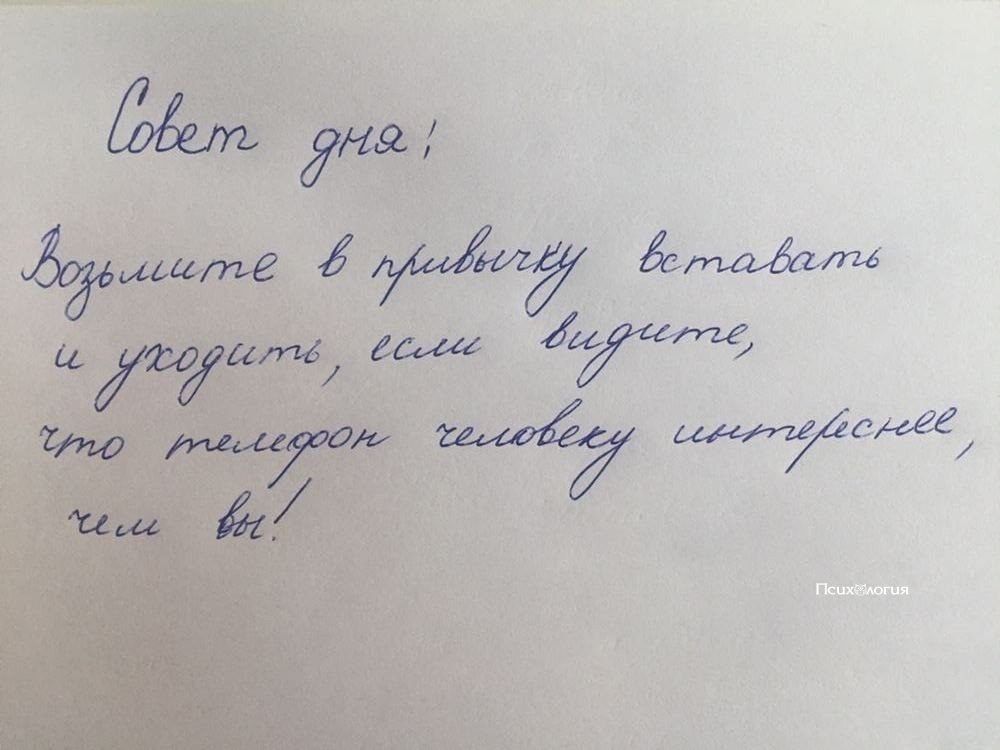 Совет дня!
Возьмите в привычку вставать
и уходить, если видите,
что телефон человеку интереснее,
чем вы!
Психология